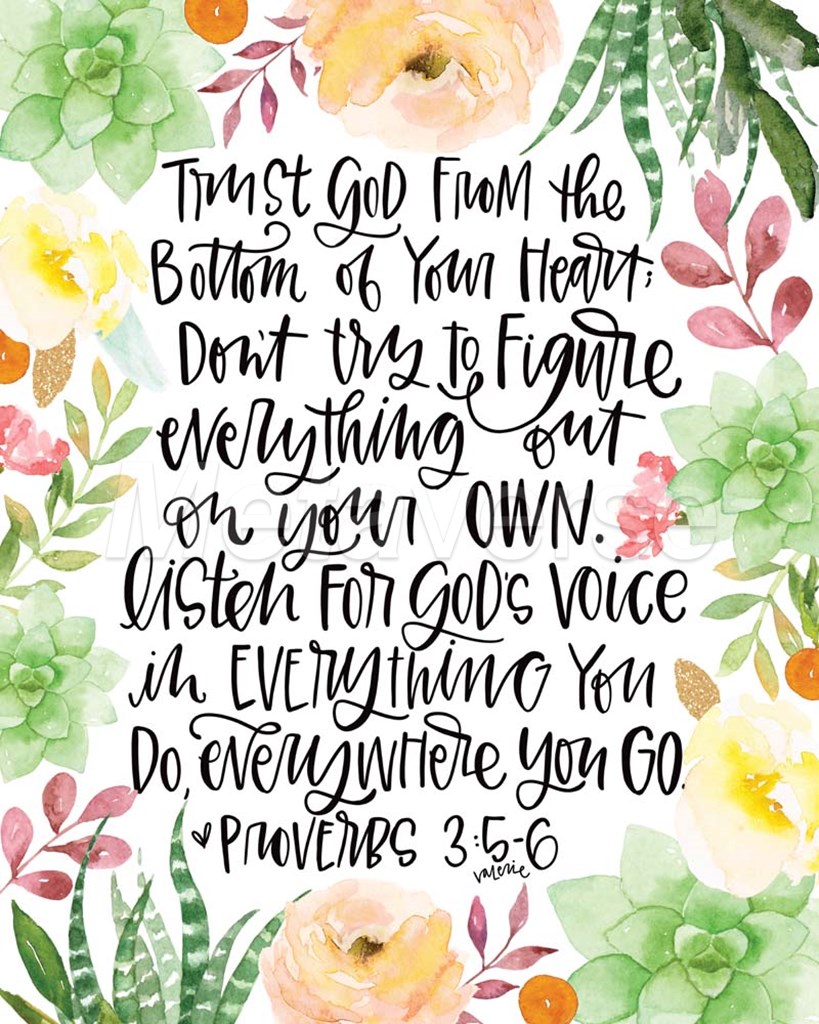 Trust God from the
Bottom of Your Heart;
Don't try to Figure
everything out
on your OWN.
listen For God's voice
in EVErything You
Do, everywhere you GO.
Proverbs 3:5-6
valerie
MetaVerse